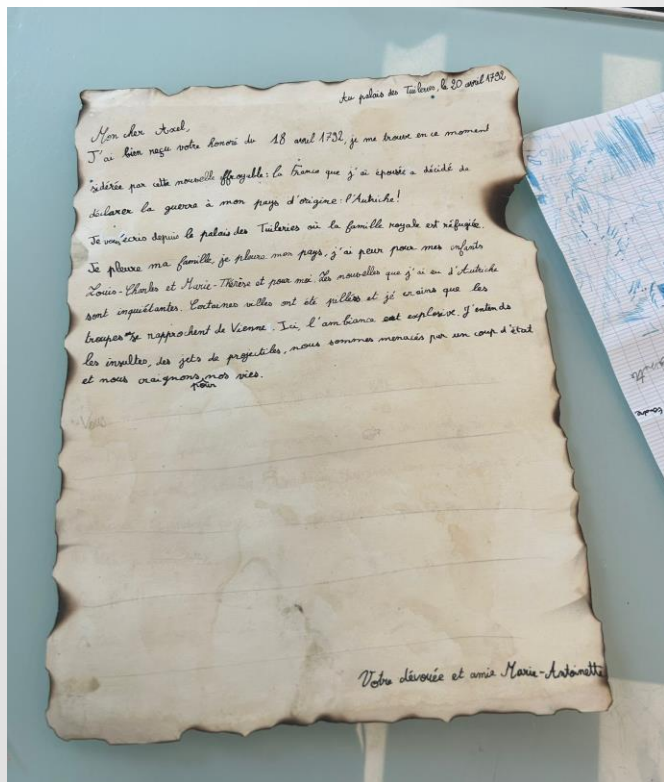 Au palais des Tuileries, le 20 avril 1792
Mon cher Axel,
J'ai bien reçu votre honoré du 18 avril 1792, je me trouve en ce moment
sidérée par cette nouvelle effroyable : la France que j'ai épousée a décidé de
déclarer la guerre à mon pays d'origine : l'Autriche !
Je vous écris depuis le palais des Tuileries où la famille royale est réfugiée.
Je pleure ma famille, je pleure mon pays, j'ai peur pour mes enfants
Louis-Charles et Marie-Thérèse et pour moi. Les nouvelles que j'ai eu d'Autriche
sont inquiétantes. Certaines villes ont été pillées et je crains que les
troupes se rapprochent de Vienne. Ici, l'ambiance est explosive. J'entends
les insultes, les jets de projectiles, nous sommes menacés par un coup d'état
et nous craignons pour nos vies.
Vous
Votre dévouée et amie Marie-Antoinette